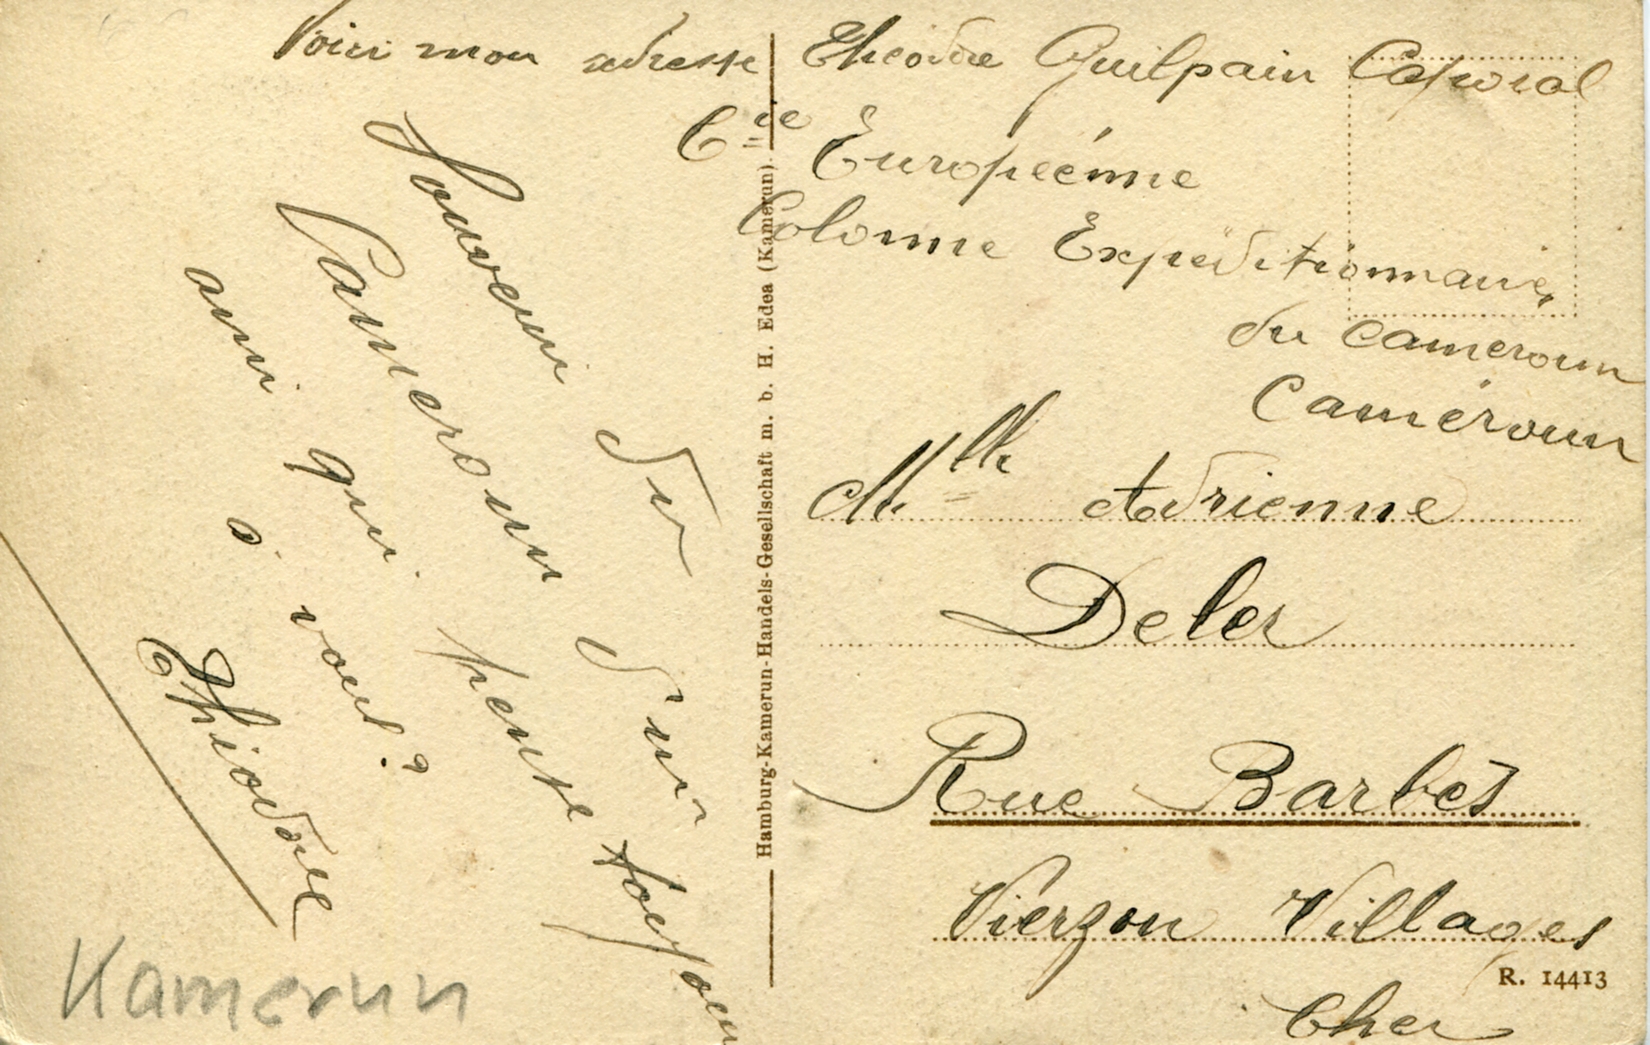 Voici mon adresse Théodore Guilpain Caporal
Cie Européenne
Colonne Expéditionnaire
du Cameroun
Caméroun
Souvenir du
Cameroun d'un
ami qui pense toujours
à vous?
Théodore
Hamburg-Kamerun-Handels-Gesellschaft m. b. H. Edea (Kamerun)
Mlle Adrienne
Deler
Rue Barbès
Vierzon Villages
Cher
R. 14413
Kamerun